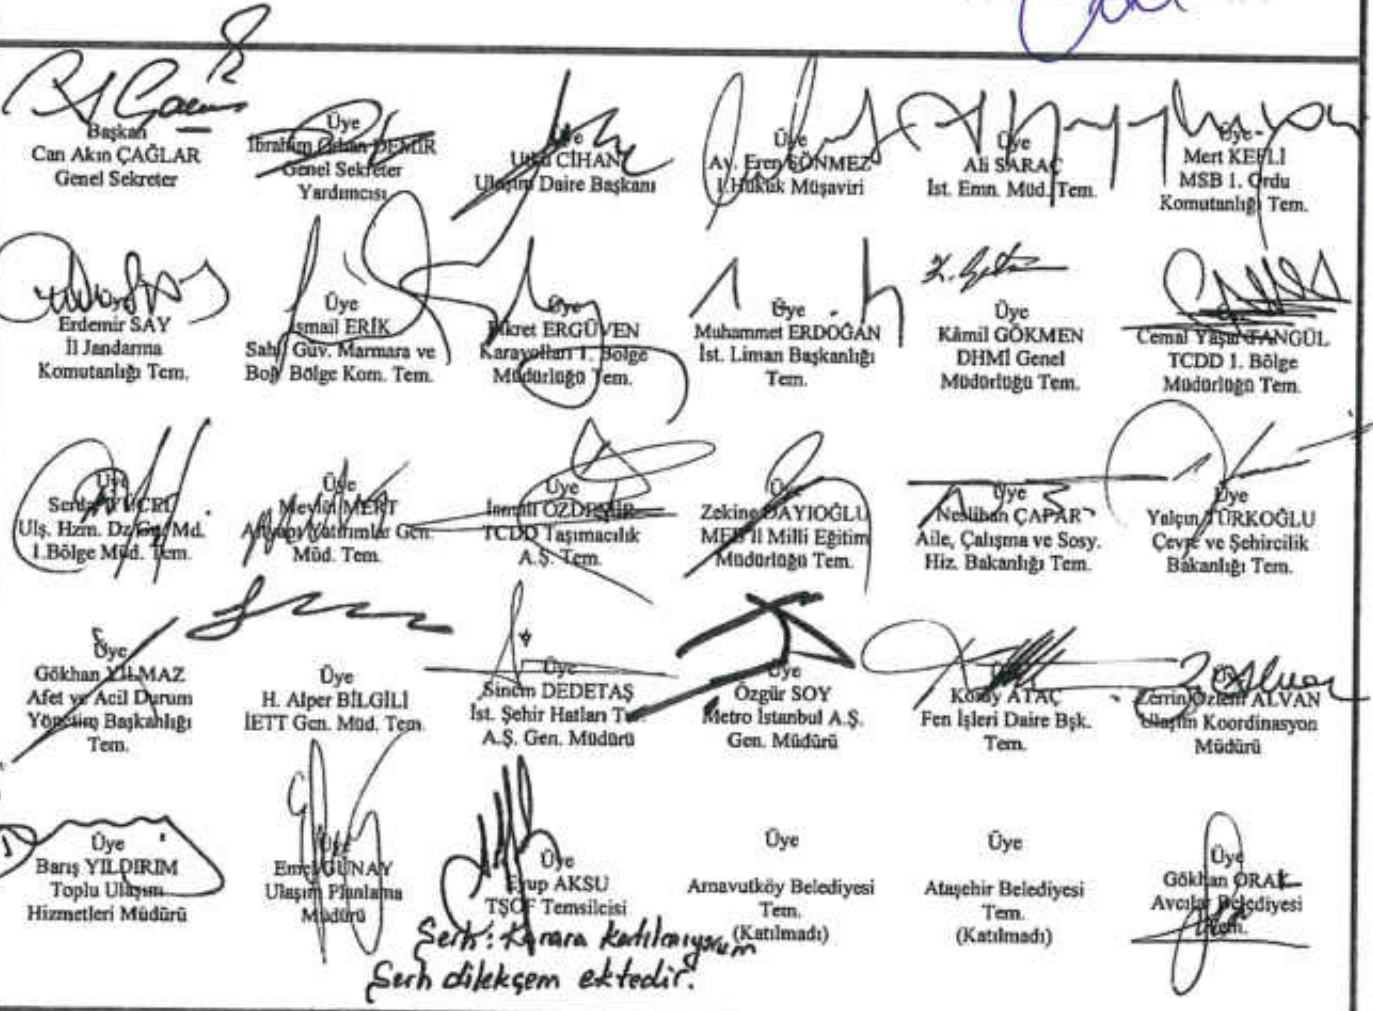 Başkan
Can Akın ÇAĞLAR
Genel Sekreter
Üye
İbrahim Orhan DEMİR
Genel Sekreter
Yardımcısı
Üye
Utku CİHAN
Ulaşım Daire Başkanı
Üye
Av. Eren SÖNMEZ
1.Hukuk Müşaviri
Üye
Ali SARAÇ
İst. Emn. Müd. Tem.
Üye
Mert KEFLİ
MSB 1. Ordu
Komutanlığı Tem.
Üye
Erdemir SAY
İl Jandarma
Komutanlığı Tem.
Üye
İsmail ERİK
Sahil Güv. Marmara ve
Boğ. Bölge Kom. Tem.
Üye
Fikret ERGÜVEN
Karayolları 1. Bölge
Müdürlüğü Tem.
Üye
Muhammet ERDOĞAN
İst. Liman Başkanlığı
Tem.
Üye
Kâmil GÖKMEN
DHMİ Genel
Müdürlüğü Tem.
Üye
Cemal Yaşar TANGÜL
TCDD 1. Bölge
Müdürlüğü Tem.
Üye
Serdar YÜCEL
Ulş. Hzm. Dz Gn. Md.
1.Bölge Müd. Tem.
Üye
Mevlüt MERT
Altyapı Yatırımlar Gen.
Müd. Tem.
Üye
İsmail ÖZDEMİR
TCDD Taşımacılık
A.Ş. Tem.
Üye
Zekine DAYIOĞLU
MEB İl Milli Eğitim
Müdürlüğü Tem.
Üye
Neslihan ÇAPAR
Aile, Çalışma ve Sosy.
Hiz. Bakanlığı Tem.
Üye
Yalçın TÜRKOĞLU
Çevre ve Şehircilik
Bakanlığı Tem.
Üye
Gökhan YILMAZ
Afet ve Acil Durum
Yönetim Başkanlığı
Tem.
Üye
H. Alper BİLGİLİ
İETT Gen. Müd. Tem.
Üye
Sinem DEDETAŞ
İst. Şehir Hatları
A.Ş. Gen. Müdürü
Üye
Özgür SOY
Metro İstanbul A.Ş.
Gen. Müdürü
Üye
Koray ATAÇ
Fen İşleri Daire Bşk.
Tem.
Üye
Zerrin Özlem ALVAN
Ulaşım Koordinasyon
Müdürü
Üye
Barış YILDIRIM
Toplu Ulaşım
Hizmetleri Müdürü
Üye
Emel GÜNAY
Ulaşım Planlama
Müdürü
Üye
Eyup AKSU
TŞOF Temsilcisi
Üye
Arnavutköy Belediyesi
Tem.
(Katılmadı)
Üye
Ataşehir Belediyesi
Tem.
(Katılmadı)
Üye
Gökhan ORAK
Avcılar Belediyesi
Tem.
Şerh: Karara katılmıyorum
Şerh dilekçem ektedir.